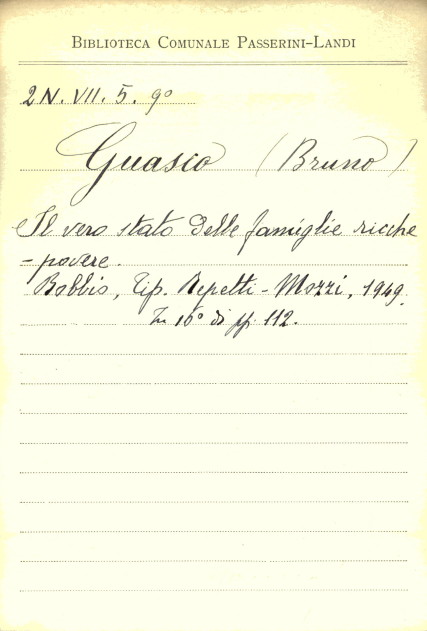 BIBLIOTECA COMUNALE PASSERINI-LANDI
2N. VII. 5. 9º
Guasco (Bruno)
Il vero stato delle famiglie ricche
-povere.
Bobbio, Tip. Repetti-Mozzi, 1949.
In 16º di pp. 112.